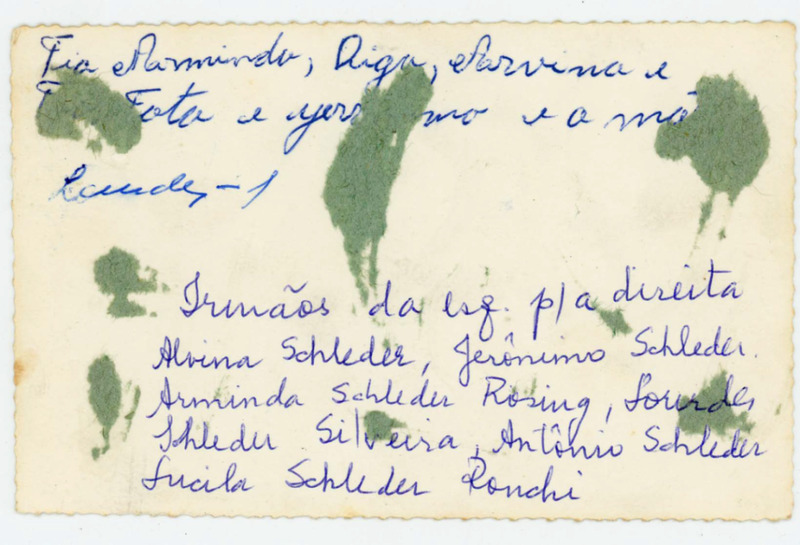 Tia Arminda, Diga, Alarvina e
Fota e mo e a mã
Irmãos da esq. p/a direita
Alvina Schleder, Jerônimo Schleder.
Arminda Schleder Rosing, Lourdes
Schleder Silveira, Antônio Schleder
Lucila Schleder Ronchi